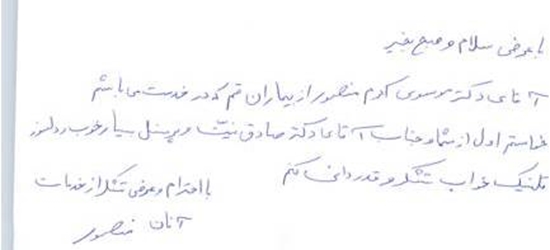 با عرض سلام و صبح بخیر
آقای دکتر موسوی کدم منصور از بیماران قم که در خدمت می باشم
خواستم اول از شما و جناب آقای دکتر صادق نیت و پرسنل بسیار خوب و دلسوز
کلنیک خواب تشکر و قدردانی کنم
با احترام و عرض تشکر از خدمات
آنان منصور